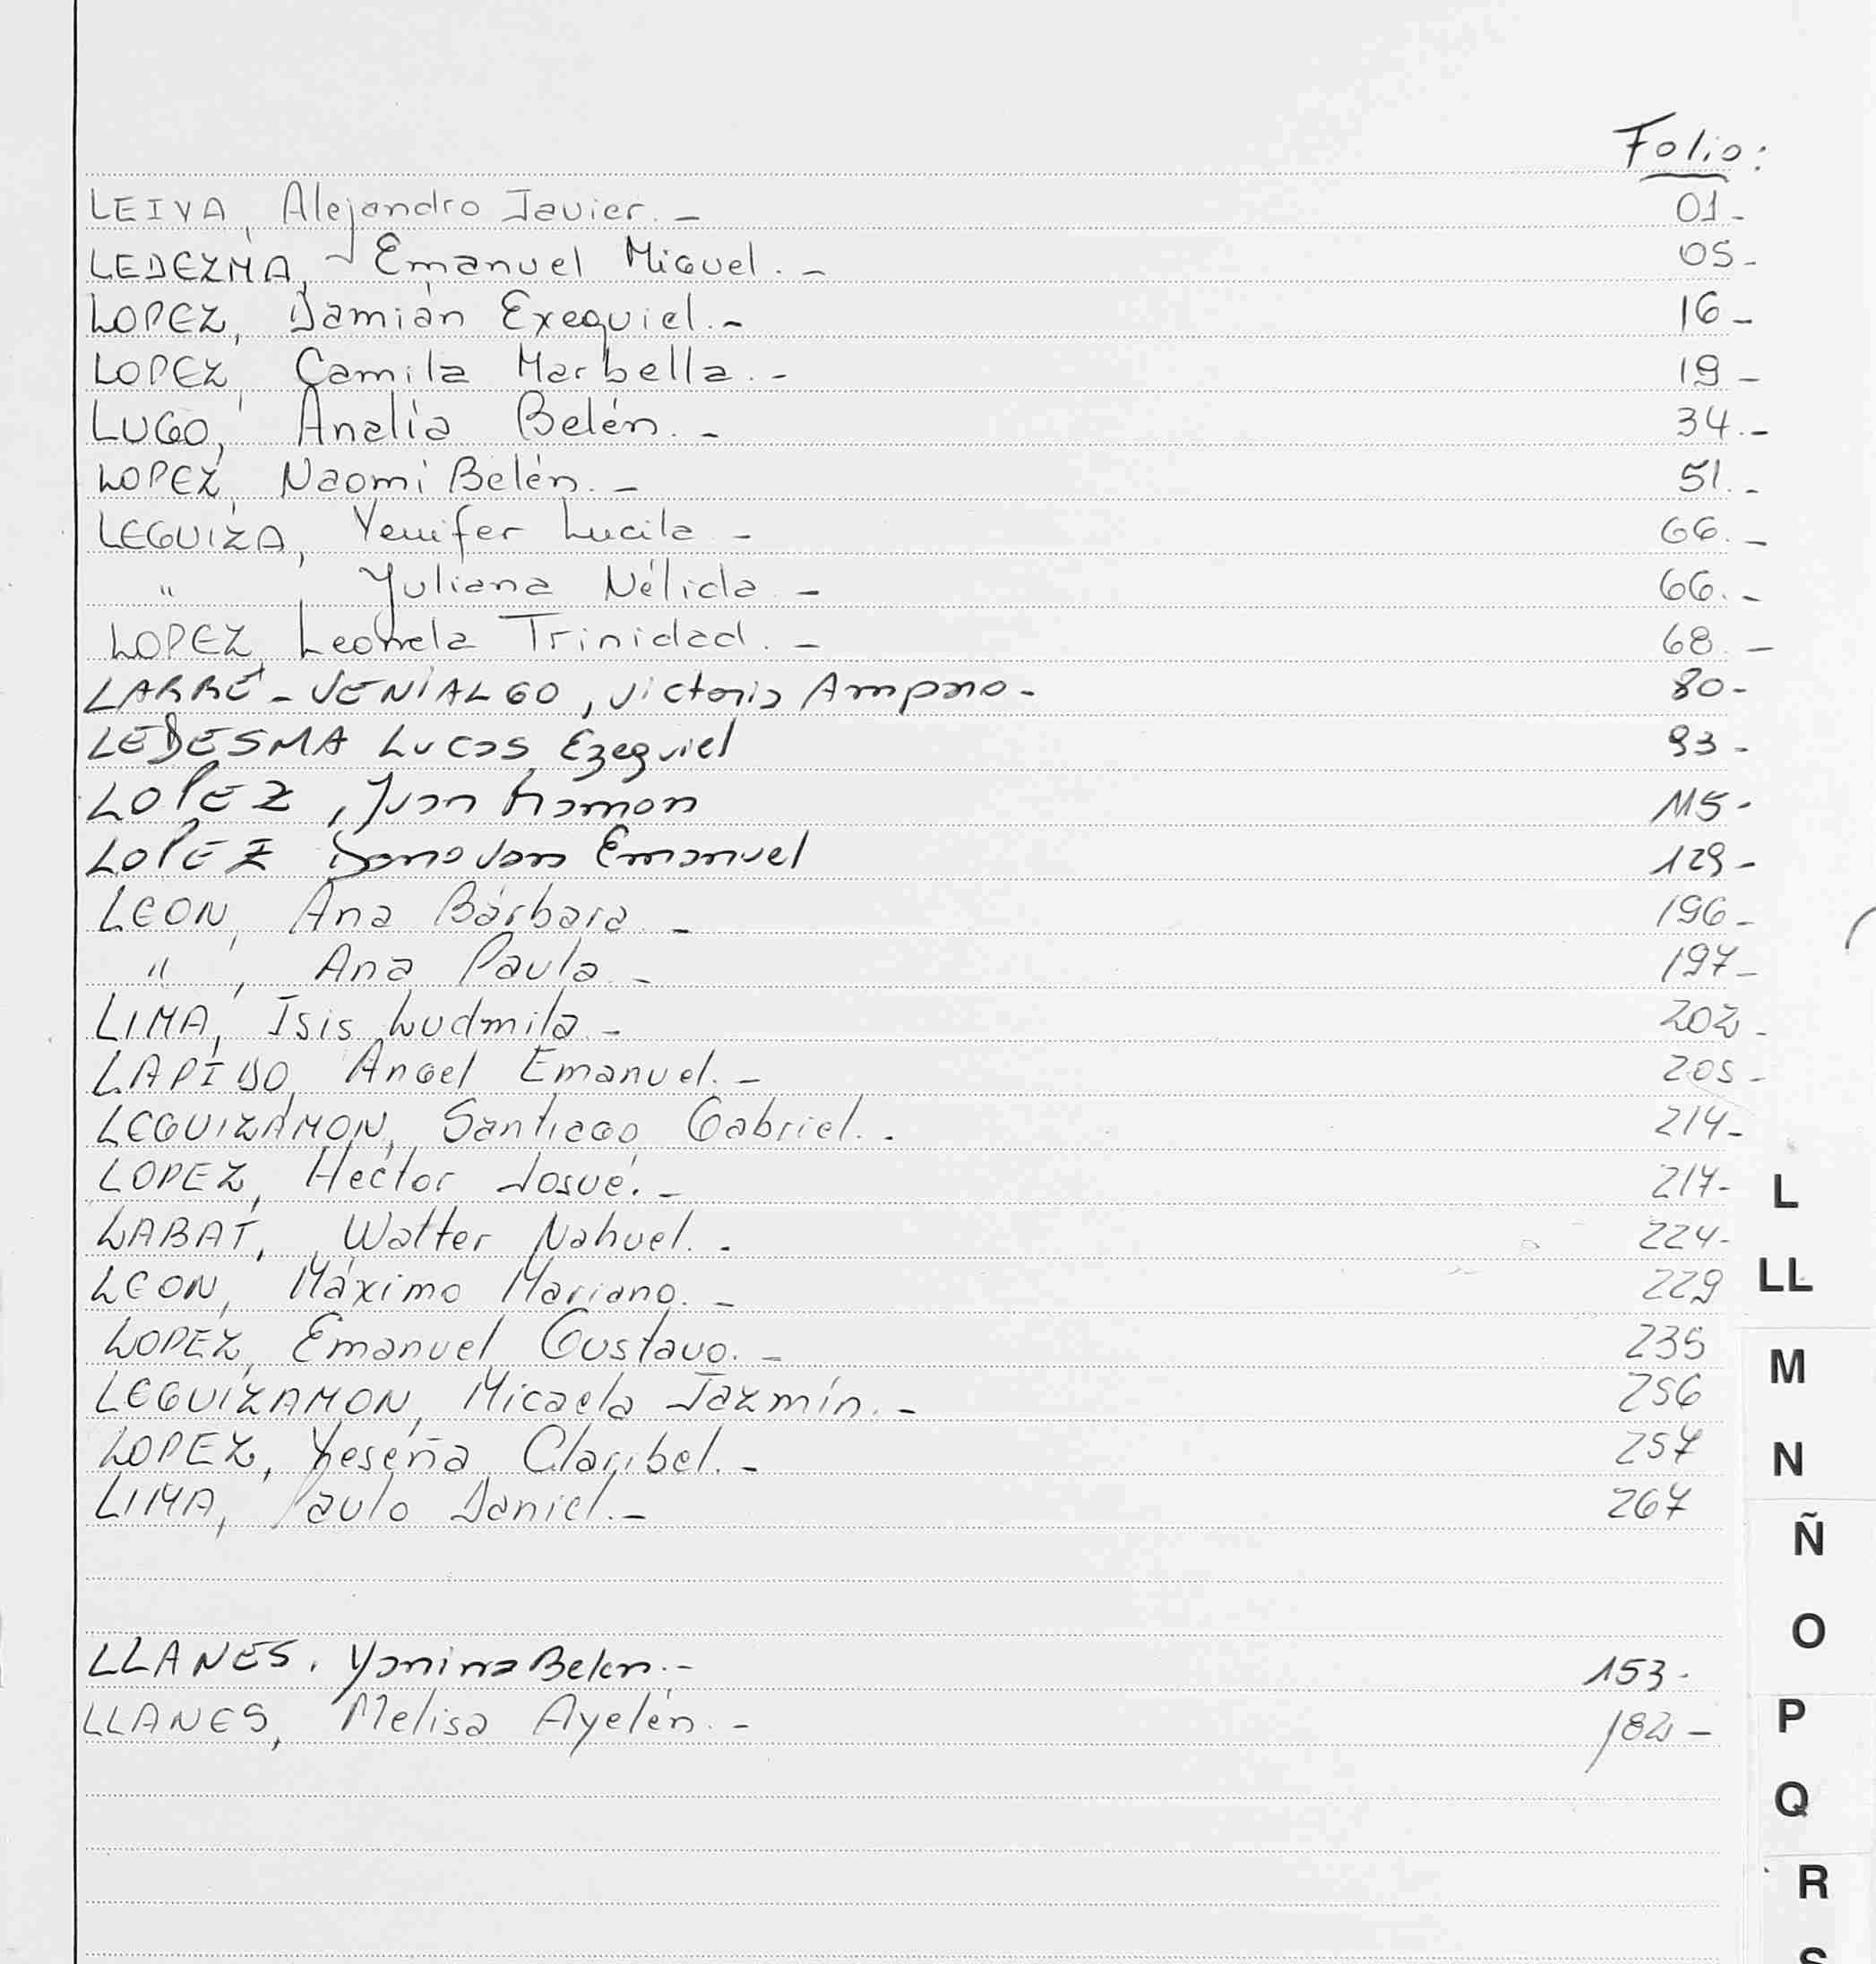 Folio:
LEIVA, Alejandro Javier.- 01-
LEDEZMA, Emanuel Miguel.- 05-
LOPEZ, Damián Exequiel.- 16-
LOPEZ, Camila Marbella.- 19-
LUGO, Analía Belén.- 34.-
LOPEZ, Naomi Belén.- 51.-
LEGUIZA, Yenifer Lucila - 66.-
" , Yuliana Nélida - 66.-
LOPEZ, Leonela Trinidad.- 68.-
LARRÉ-VENIALGO, Victoria Amparo- 80-
LEDESMA Lucas Ezequiel 93-
LOPEZ, Juan Ramon 115-
LOPEZ Donovan Emanuel 129-
LEON, Ana Bárbara.- 196-
" , Ana Paula.- 197-
LIMA, Isis Ludmila.- 202-
LAPIDO, Angel Emanuel.- 205-
LEGUIZAMON, Santiago Gabriel.- 214-
LOPEZ, Hector Josué.- 217-
LABAT, Walter Nahuel.- 224-
LEON, Máximo Mariano.- 229
LOPEZ, Emanuel Gustavo.- 235
LEGUIZAMON, Micaela Jazmín.- 256
LOPEZ, Yeseña Claribel.- 257
LIMA, Paulo Daniel.- 267
LLANES, Yanina Belen.- 153-
LLANES, Melisa Ayelén.- 182-
L
LL
M
N
Ñ
O
P
Q
R
S